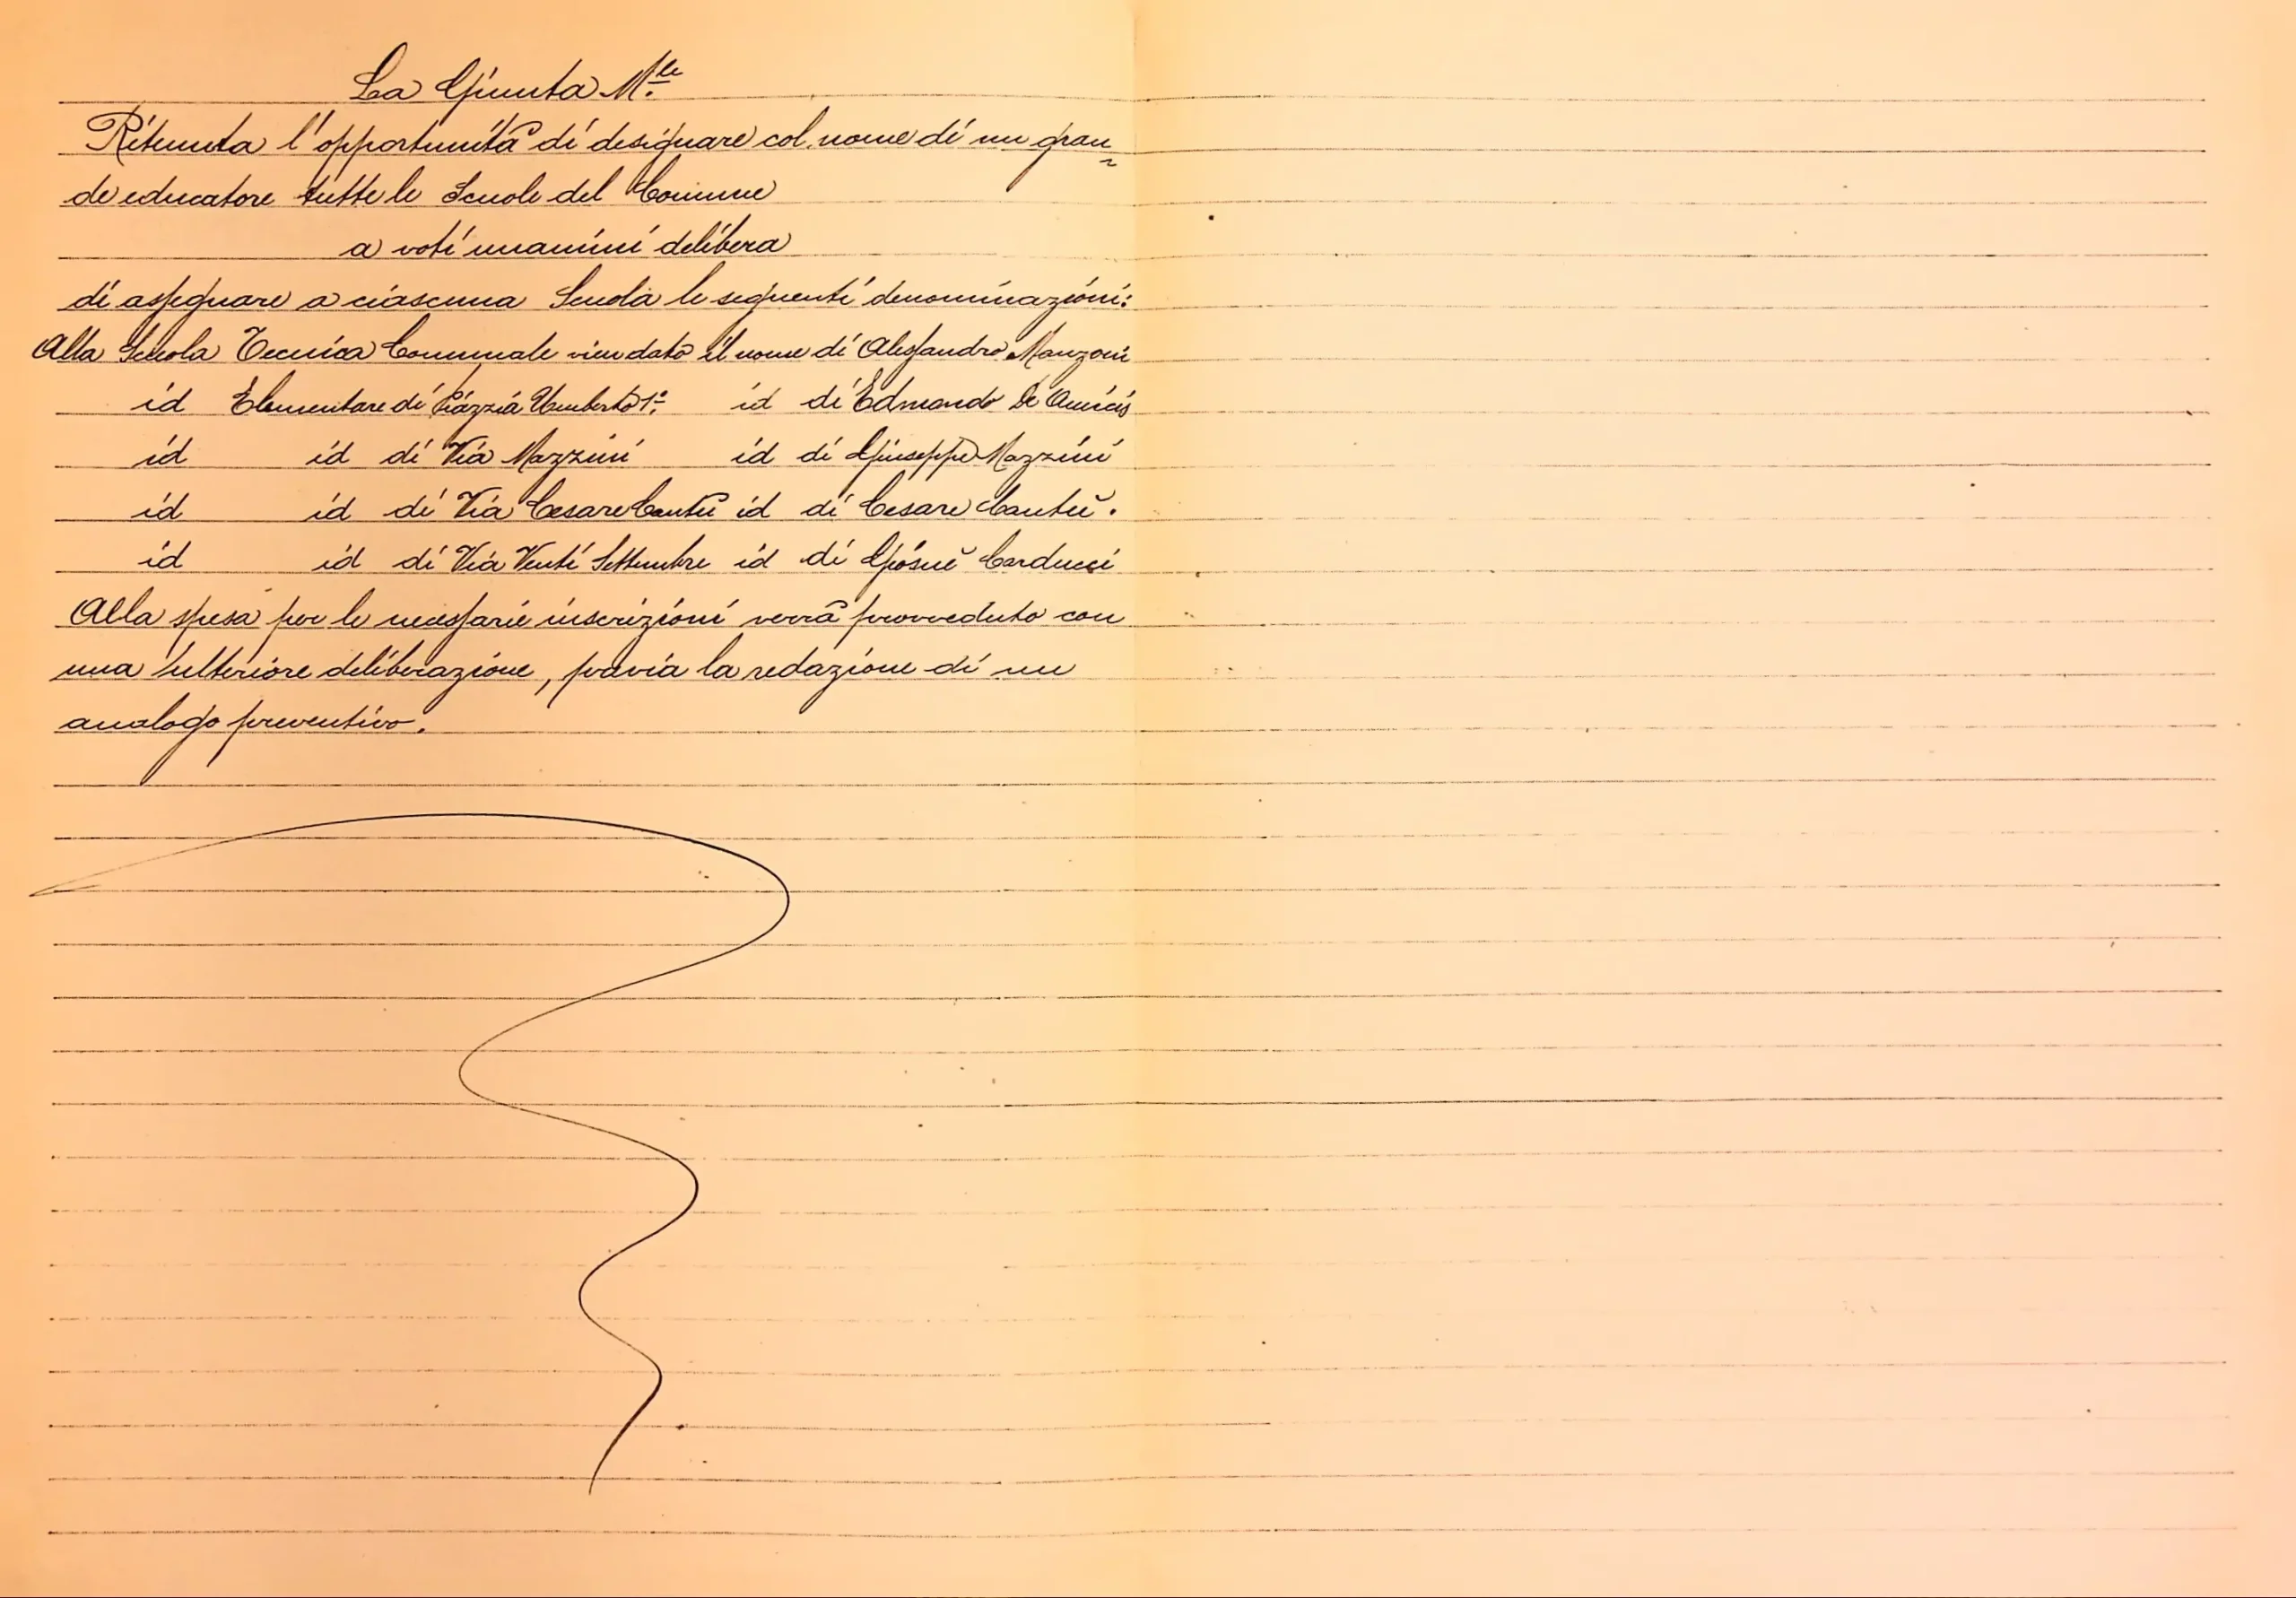 La Giunta M.le
Ritenuta l'opportunità di designare col nome di un gran=
de educatore tutte le Scuole del Comune
a voti unanimi delibera
di assegnare a ciascuna Scuola le seguenti denominazioni:
Alla Scuola Tecnica Comunale vien dato il nome di Alessandro Manzoni
id Elementare di Piazza Umberto 1º id di Edmondo De Amicis
id id di Via Mazzini id di Giuseppe Mazzini
id id di Via Cesare Cantù id di Cesare Cantù.
id id di Via Venti Settembre id di Giosuè Carducci
Alla spesa per le necessarie inscrizioni verrà provveduto con
una ulteriore deliberazione, previa la redazione di un
analogo preventivo.